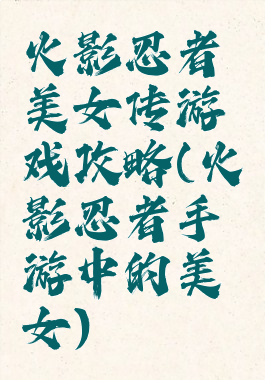 火影忍者
美女传游
戏攻略(火
影忍者手
游中的美
女)